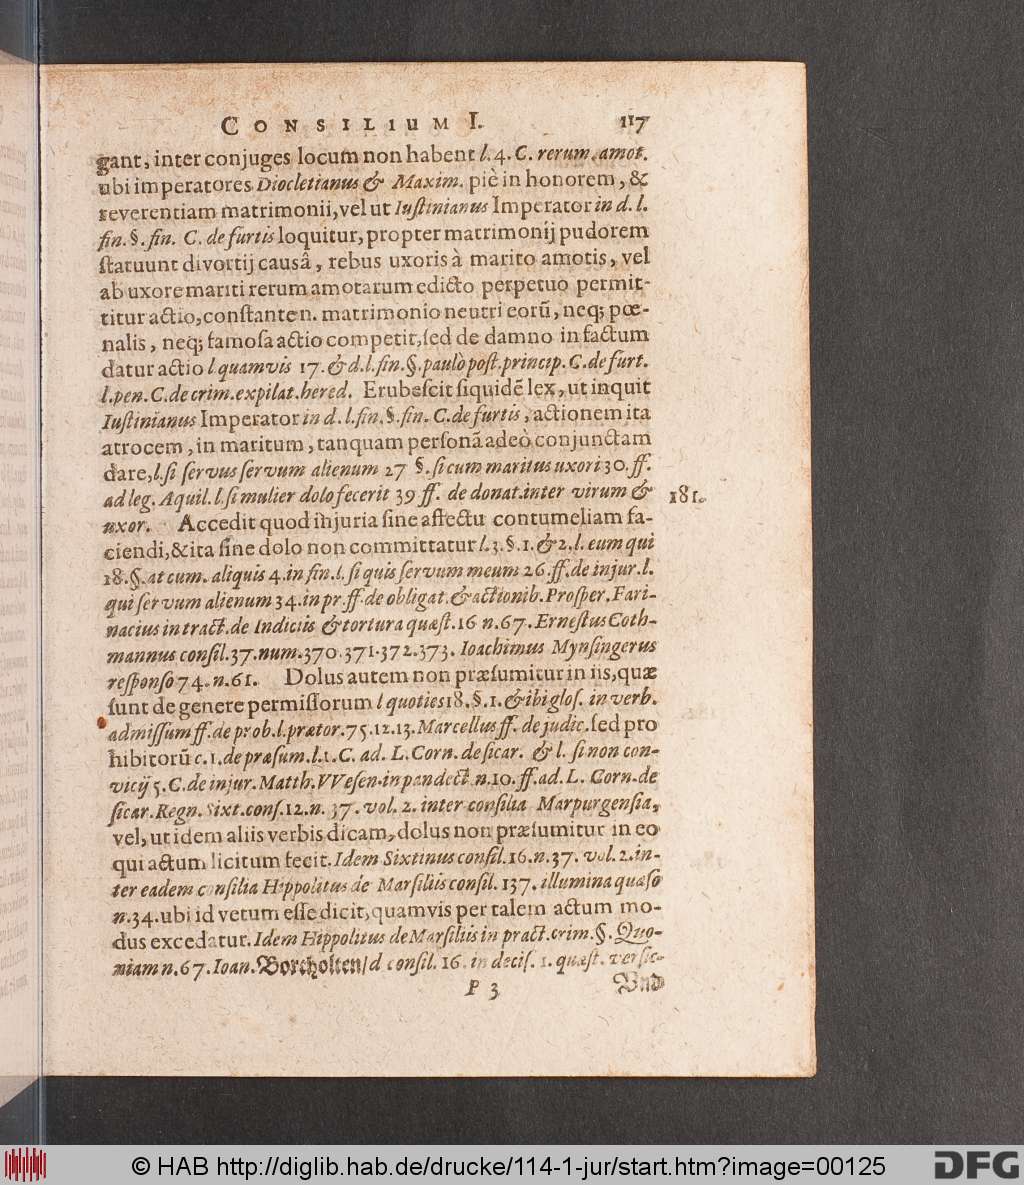 CONSILIUM I. 117
gant, inter conjuges locum non habent l. 4. C. rerum. amot.
ubi imperatores Diocletianus & Maxim. piè in honorem, &
reverentiam matrimonii, vel ut Iustinianus Imperator in d. l.
fin. §. fin. C. de furtis loquitur, propter matrimonij pudorem
statuunt divortij causâ, rebus uxoris à marito amotis, vel
ab uxore mariti rerum amotarum edicto perpetuo permit-
titur actio, constante n. matrimonio neutri eorũ, neq; pœ-
nalis, neq; famosa actio competit, sed de damno in factum
datur actio l quamvis 17. & d. l. fin. §. paulò post. princip. C. de furt.
l. pen. C. de crim. expilat. hered. Erubescit siquidẽ lex, ut inquit
Iustinianus Imperator in d. l. fin. §. fin. C. de furtis, actionem ita
atrocem, in maritum, tanquam personã adeò conjunctam
dare, l. si servus servum alienum 27 §. si cum maritus uxori 30. ff.
ad leg. Aquil. l. si mulier dolo fecerit 39 ff. de donat. inter virum & 181.
uxor. Accedit quod injuria sine affectu contumeliam fa-
ciendi, & ita sine dolo non committatur l. 3. §. 1. & 2. l. eum qui
18. §. at cum. aliquis 4. in fin. l. si quis servum meum 26. ff. de injur. l.
qui servum alienum 34. in pr. ff. de obligat. & actionib. Prosper. Fari-
nacius in tract. de Indiciis & tortura quæst. 16 n. 67. Ernestus Coth-
mannus consil. 37. num. 370. 371. 372. 373. Ioachimus Mynsingerus
responso 74. n. 61. Dolus autem non præsumitur in iis, quæ
sunt de genere permissorum l quoties 18. §. 1. & ibi glos. in verb.
admissum ff. de prob. l. prætor. 75. 12. 13. Marcellus ff. de judic. sed pro
hibitorũ c. 1. de præsum. l. 1. C. ad. L. Corn. de sicar. & l. si non con-
vicij 5. C. de injur. Matth. VVesen. in pandect. n. 10. ff. ad. L. Corn. de
sicar. Regn. Sixt. cons. 12. n. 37. vol. 2. inter consilia Marpurgensia,
vel, ut idem aliis verbis dicam, dolus non præsumitur in eo
qui actum licitum fecit. Idem Sixtinus consil. 16. n. 37. vol. 2. in-
ter eadem consilia Hippolitus de Marsiliis consil. 137. illumina quæso
n. 34. ubi id verum esse dicit, quamvis per talem actum mo-
dus excedatur. Idem Hippolitus de Marsiliis in pract. crim. §. Quo-
niam n. 67. Ioan. Borcholten / d consil. 16. in decis. 1. quæst. versic.
P 3 Vnd
© HAB http://diglib.hab.de/drucke/114-1-jur/start.htm?image=00125 DFG